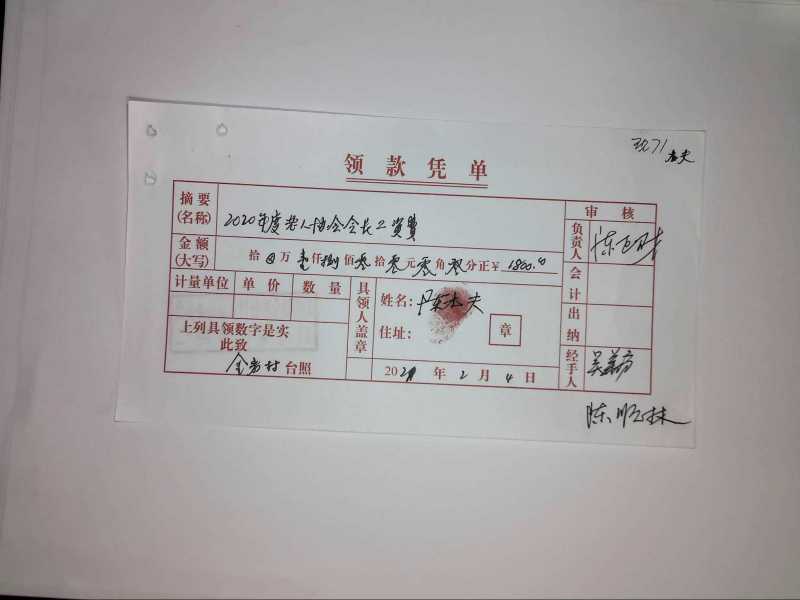 领款凭单
摘要(名称) 2020年度老人协会会长工资费
审核
金额(大写) 拾 万 壹仟捌佰零拾零元零角零分正¥ 1800.00
负责人
计量单位 单价 数量
具领人盖章
姓名: 夫
住址:
章
会计
出纳
上列具领数字是实
此致
村 台照
2021年2月4日
经手人
陈顺林